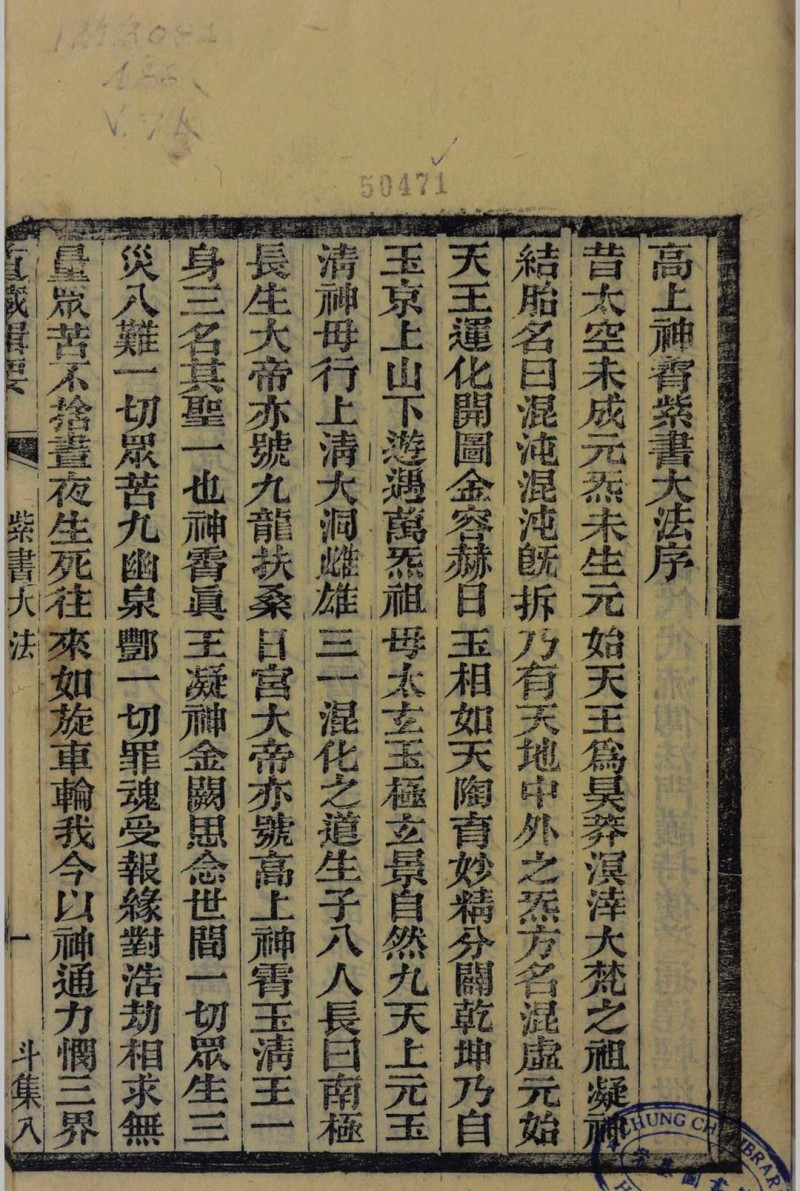 50471
高上神霄紫書大法序
昔太空未成元炁未生元始天王爲昊莽溟涬大梵之祖凝神
結胎名曰混沌混沌旣拆乃有天地中外之炁方名混虛元始
天王運化開圖金容赫日玉相如天陶育妙精分闢乾坤乃自
玉京上山下遊遇萬炁祖母太玄玉極玄景自然九天上元玉
清神母行上清大洞雌雄三一混化之道生子八人長曰南極
長生大帝亦號九龍扶桑日宮大帝亦號高上神霄玉清王一
身三名其聖一也神霄眞王凝神金闕思念世間一切眾生三
災八難一切眾苦九幽泉酆一切罪魂受報緣對浩劫相求無
量眾苦不捨晝夜生死往來如旋車輪我今以神通力憫三界
道藏輯要 紫書大法 一 斗集八